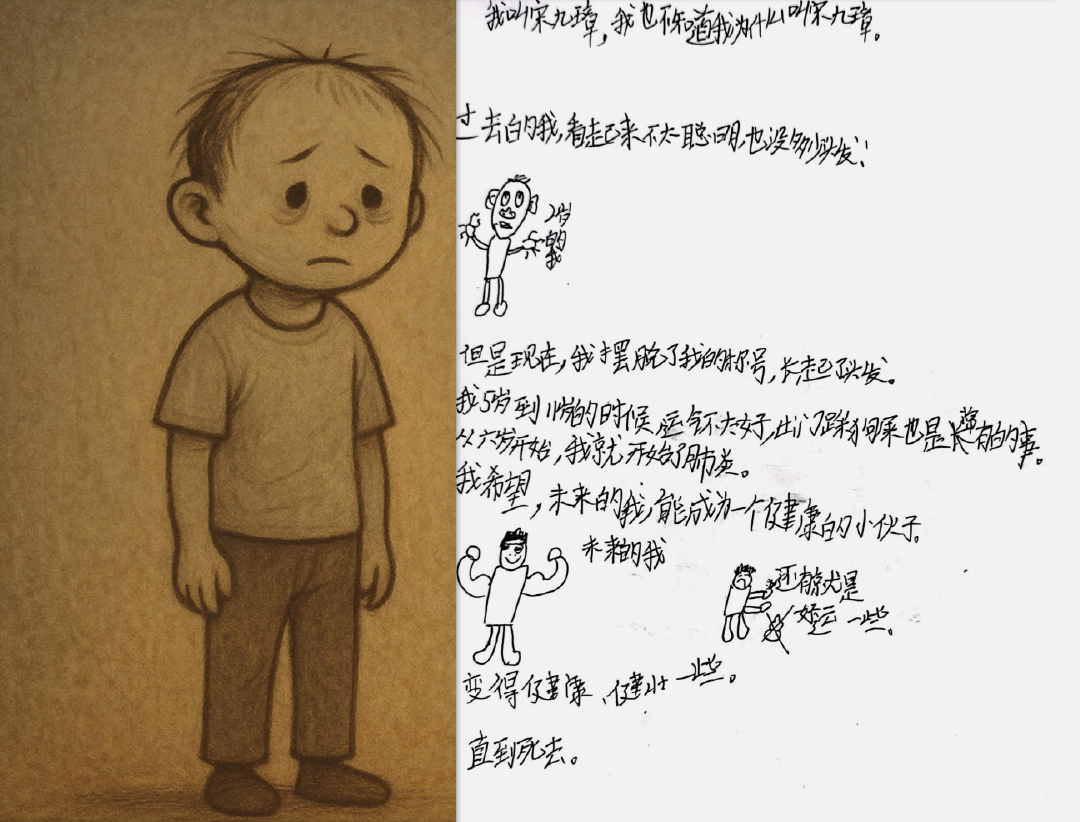 我叫宋九璋，我也不知道我为什么叫宋九璋。
过去的我，看起来不太聪明，也没多少头发！
2岁
的
我
但是现在，我摆脱了我的称号，长起了头发。
我5岁到11岁的时候，运气不太好，出门踩狗屎也是常有的事。
从六岁开始，我就开始了肺炎。
我希望，未来的我，能成为一个健康的小伙子。
未来的我
还有就是
好运一些。
变得健康、健壮一些。
直到死去。